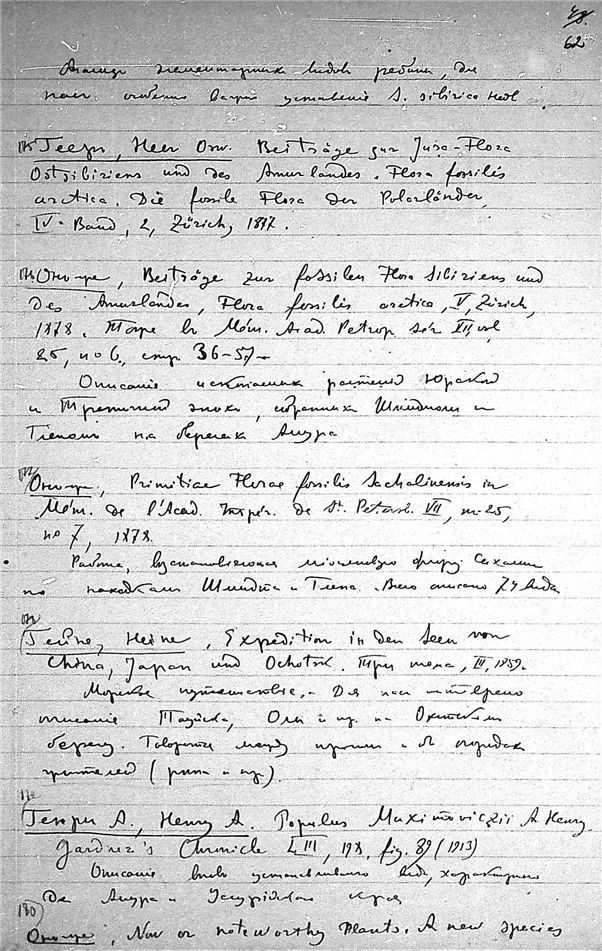 62
элементарных видов рябины, для
нас особенно установление S. sibirica Hedl
Геер, Heer Osw. Beiträge zur Jura-Flora
Ostsibiriens und des Amurlandes. Flora fossilis
arctica. Die fossile Flora der Polarländer,
IV. Band, 2, Zürich, 1877.
Он-же, Beiträge zur fossilen Flora Sibiriens und
des Amurlandes, Flora fossilis arctica, V, Zürich,
1878. Тоже в Mém. Acad. Petrop. sér VII, vol
25, no 6, стр. 36-57
Описание ископаемых растений Юрской
и Третичной эпохи, собранных Шмидтом и
Гленом на берегах Амура
Он-же, Primitiae Florae fossilis Sachalinensis in
Mém. de l'Acad. Impér. de St. Petersb. VII, т. 25,
no 7, 1878.
Работа, флору Сахалина
по находкам Шмидта и Глена. Всего описано 74 вида
Гейне, Heine, Expedition in den Seen von
China, Japan und Ochotsk. Три тома, III, 1859.
Морское путешествие. Для нас
описание Ола и пр. на Охотском
берегу. Говорится между прочим и об огородах
жителей (репа и пр.).
Генри А., Henry A. Populus Maximoviczii A Henry
Gardner's Chronicle LIII, 198, fig. 89 (1913)
Описание вновь установленного вида, характерного
для Амура и Уссурийского края
180
Он-же, New or noteworthy Plants. A new species